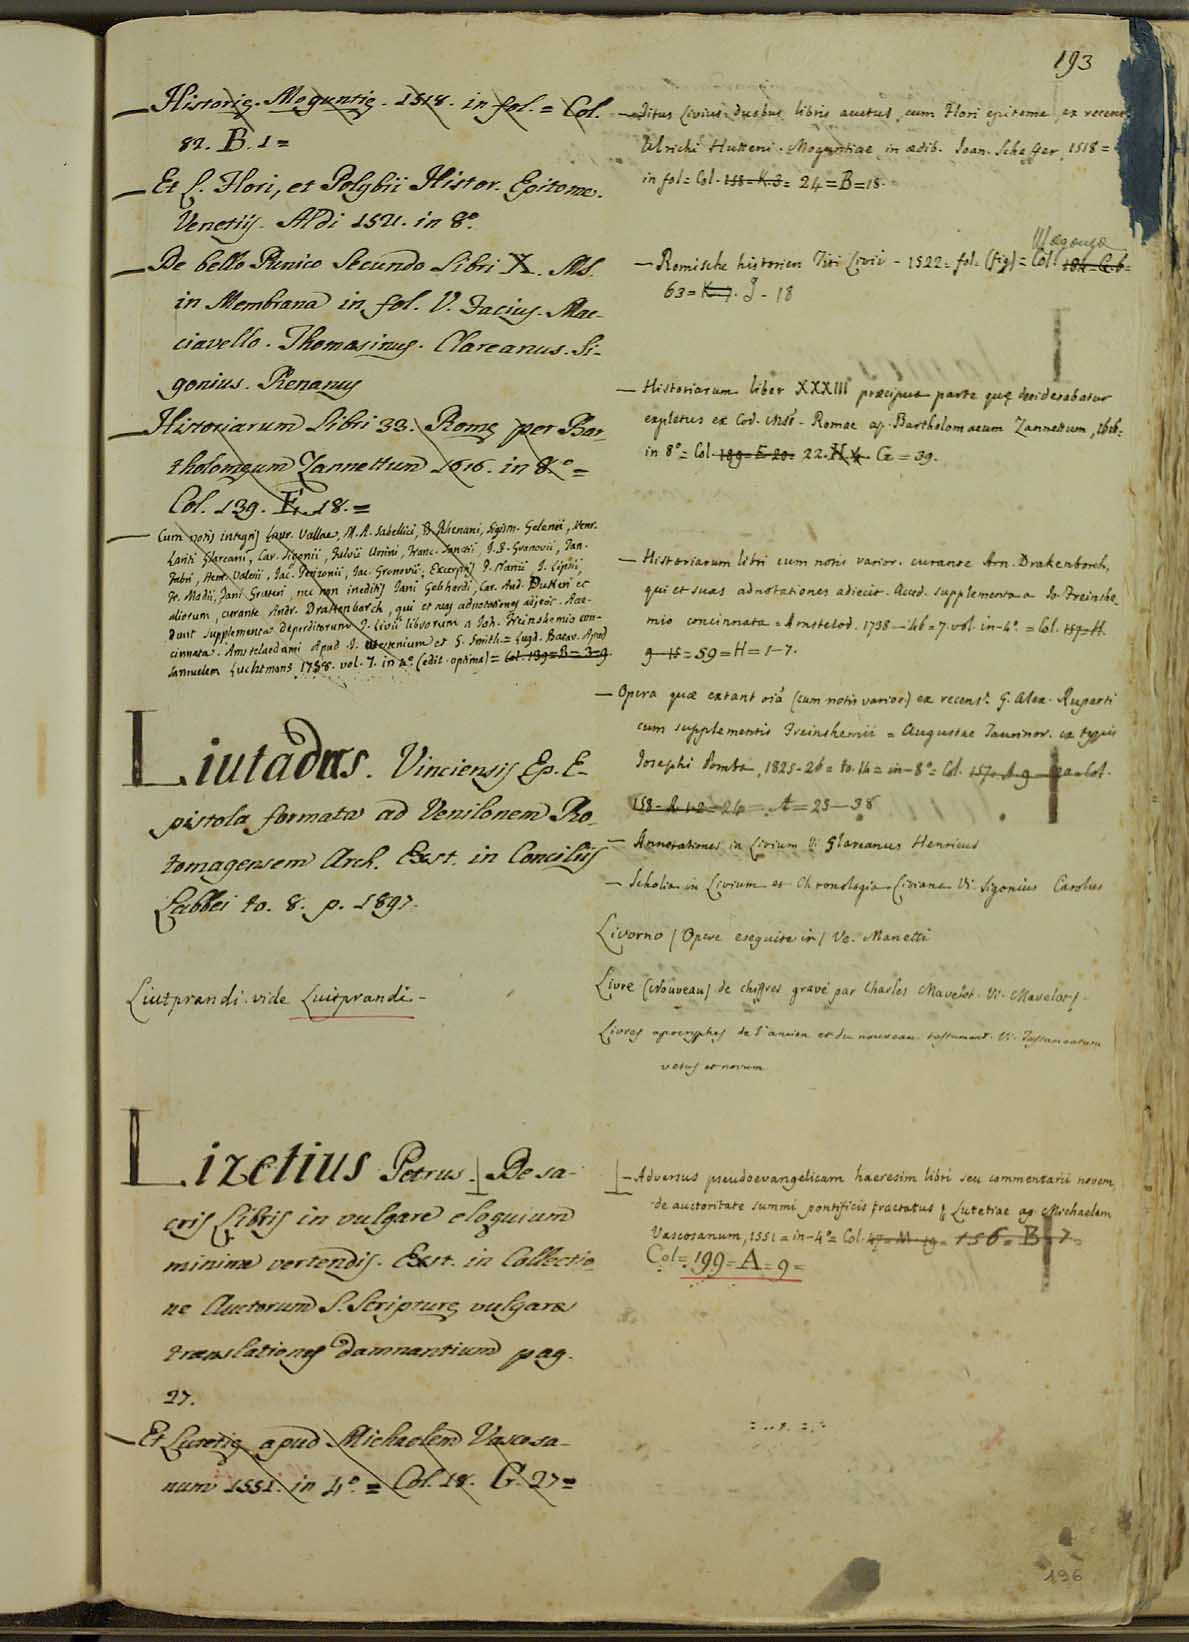 193
— Historię. Moguntię. 1518. in fol. = Col.
82. B. 1 =
— Et L. Flori, et Polybii Histor. Epitome.
Venetijs. Aldi 1521. in 8.°
— De bello Punico Secundo Libri X. MS.
in Membrana in fol. V. Facius. Mac-
ciavello. Thomasinus. Clareanus. Si-
gonius. Renanus
— Historiarum Libri 33. Romę per Bar-
tholomęum Zannettum 1616. in 8.° =
Col. 139. F. 18. =
— Cum notis integris Laur. Vallae, M. A. Sabellici, B. Rhenani, Sigism. Gelenii, Henr.
Lariti Glareani, Car. Sigonii, Fulvii Ursini, Franc. Sanctii, J. F. Gronovii, Tan.
Fabri, Henr. Valesii, Jac. Perizonii, Jac. Gronovii; Excerptis J. Nannii J. Lipsii,
Fr. Modii, Jani Gruteri, nec non ineditis Jani Gebhardi, Car. And. Dukeri et
aliorum, curante Andr. Drakenborch, qui et suas adnotationes adjecit. Acce-
dunt supplementa deperditorum T. Livii librorum a Joh. Freinshemio con-
cinnata. Amstelaedami apud J. Wetstenium et G. Smith. = Lugd. Batav. Apud
Samuelem Luchtmans 1738. vol. 7. in 4.° (edit. optima) = Col. 139 = B = 3 = 9
Liutadus. Vinciensis Ep. E-
pistola formata ad Venilonem Ro-
tomagensem Arch. Exst. in Conciliis
Labbei to. 8. p. 1897.
Liutprandi. vide Luitprandi -
Lizetius Petrus. De sa-
cris Libris in vulgare eloquium
minime vertendis. Exst. in Collectio-
ne Auctorum S. Scripturę vulgares
translationes damnantium pag.
27.
— Et Lutetię apud Michaelem Vascosa-
num 1551. in 4.° = Col. 18. G. 27 =
— Titus Livius duobus libris auctus, cum Flori epitome, ex recens.
Ulrichi Hutteni. Moguntiae in aedib. Joan. Scheffer, 1518 =
in fol = Col. 158 = K. 3 = 24 = B = 18.
— Romische historien Titi Livii - 1522 = fol. (fig) = Col.
63 = K. 7. J - 18
— Historiarum liber XXXIII praecipua parte quę desiderabatur
expletus ex Cod. msst - Romae ap. Bartholomaeum Zannettum, 1616 =
in 8° = Col. 189 = E 20 = 22. H 4. G = 39.
— Historiarum libri cum notis varior. curante Arn. Drakenborch,
qui et suas adnotationes adiecit. Acced. supplementa a Jo Freinshe
mio concinnata = Amstelod. 1738 - 46 = 7. vol. in - 4°. = Col. 157 = H.
9 - 15 = 59 = H = 1 - 7.
— Opera quae extant oīa (cum notis varior) ex recens.e G. Alex. Ruperti
cum supplementis Freinshemii = Augustae Taurinor. ex typis
Josephi Pomba, 1825 - 26 = to. 14 = in - 8° = Col. 157 = A. 9 = Col.
158 = A 1-2 = 26 = A = 25 — 38
— Annotationes in Livium Vi Glareanus Henricus
— Scholia in Livium et Chronologia Liviana Vi. Sigonius Carolus
Livorno / Opere eseguite in / Ve. Manetti
Livre (Nouveau) de chiffres gravé par Charles Mavelot. Vi. Mavelot
Livres apocryphes de l'ancien et du nouveau testament. Vi. Testamentum
vetus et novum
— Adversus pseudoevangelicam haeresim libri seu commentarii novem,
de auctoritate summi pontificis tractatus Lutetiae ap. Michaelem
Vascosanum, 1551 = in - 4° = Col. 47 = M. 19 = 156 = B = 7 =
Col = 199 = A = 9 =
196